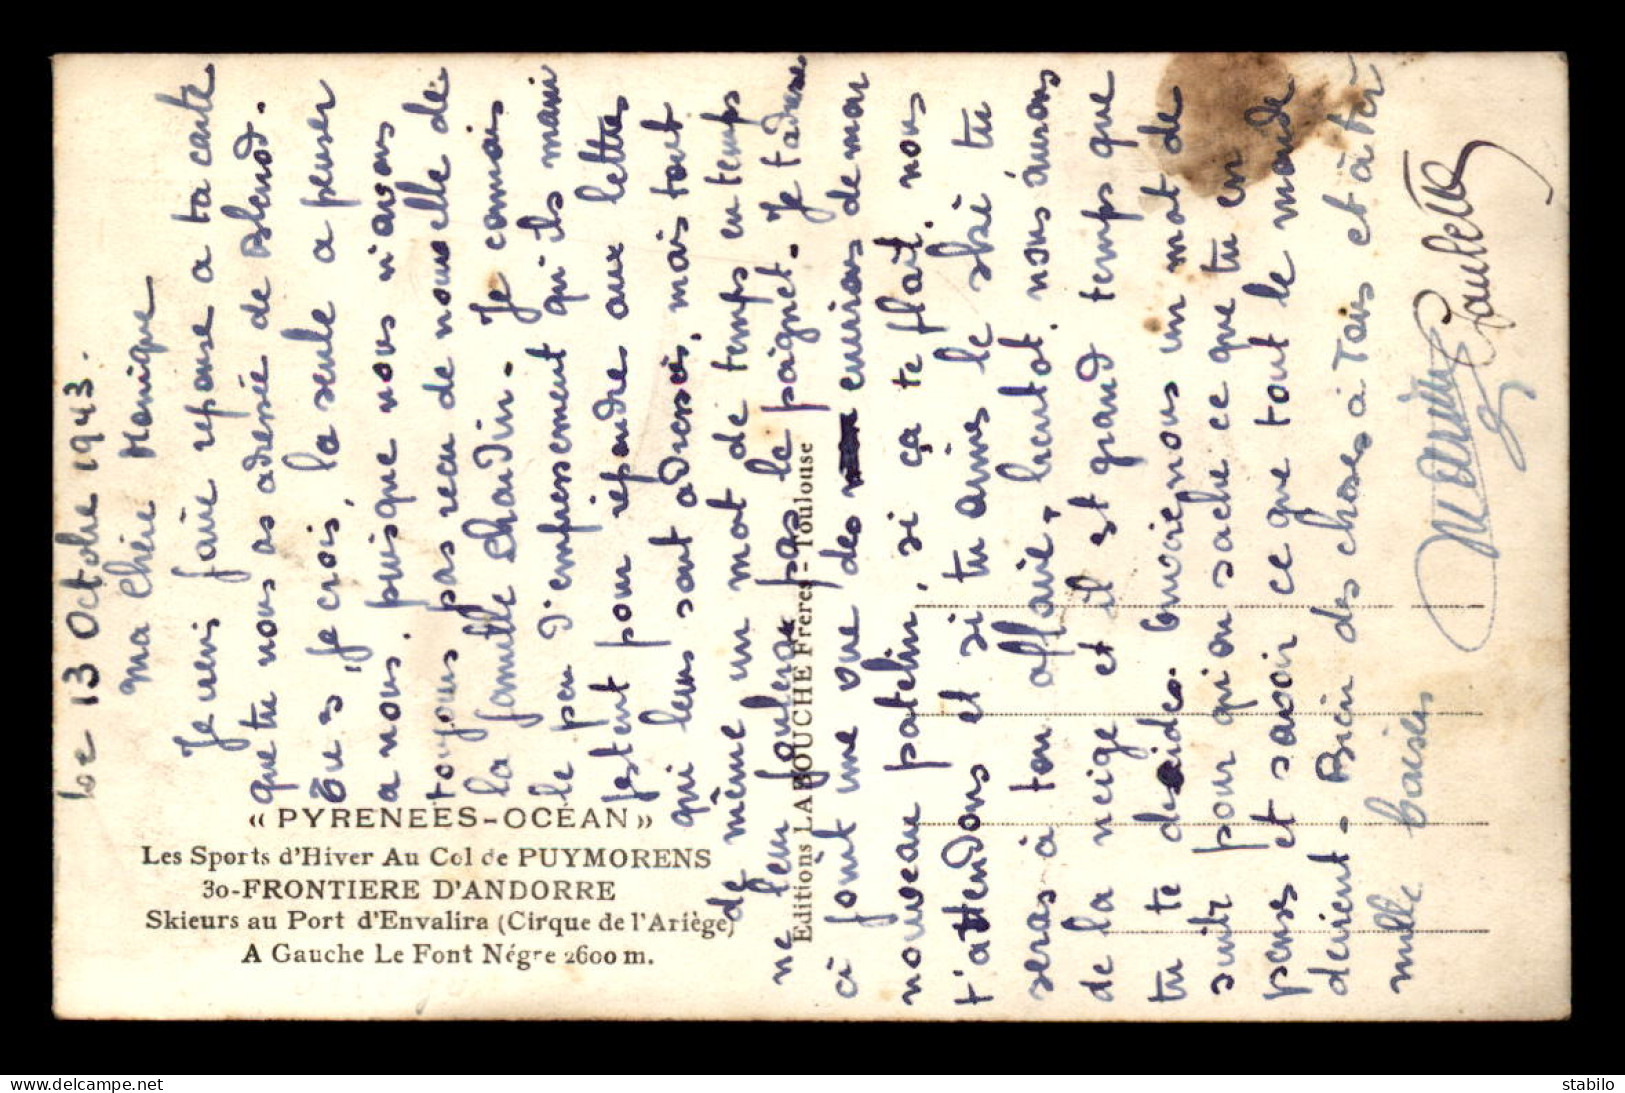 Le 13 Octobre 1943.
Ma Chère Monique
Je viens faire reponse a ta carte
que tu nous as adresée de Blenod.
Tu es, je crois, la seule a penser
a nous. puisque nous n'avons
toujours pas recu de nouvelle de
la famille Chaudin. Je connais
le peu d'empressement qu'ils mani
festent pour répondre aux lettres
qui leur sont adressés, mais tout
de même un mot de temps en temps
ne leur foulera pas le poignet. Je t'adresse
ci joint une vue des environs de mon
nouveau patelin, si ça te plait. nous
t'attendons et si tu aimes le ski tu
seras à ton affaire, bientot. nous aurons
de la neige et il est grand temps que
tu te decides. Envoie nous un mot de
suite pour qu'on sache ce que tu en
penses et savoir ce que tout le monde
devient - Bien des choses à Tous et à toi
mille baisers
Paulette
« PYRENEES-OCÉAN »
Les Sports d'Hiver Au Col de PUYMORENS
30-FRONTIERE D'ANDORRE
Skieurs au Port d'Envalira (Cirque de l'Ariège)
A Gauche Le Font Négre 2600 m.
Editions LABOUCHE Frères - Toulouse
www.delcampe.net
stabilo